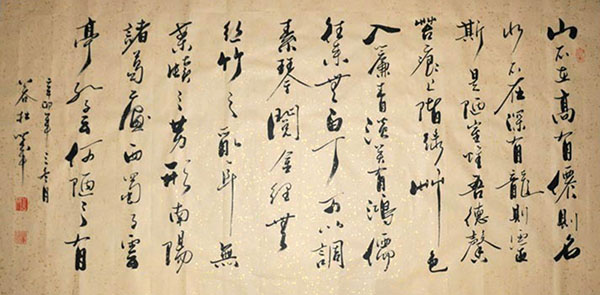 山不在高有僊則名
水不在深有龍則靈
斯是陋室惟吾德馨
苔痕上階綠艸色
入簾青談笑有鴻儒
往來無白丁可以調
素琴閱金經無
絲竹之亂耳無
案牘之勞形南陽
諸葛廬西蜀子雲
亭孔子云何陋之有
辛卯年三月